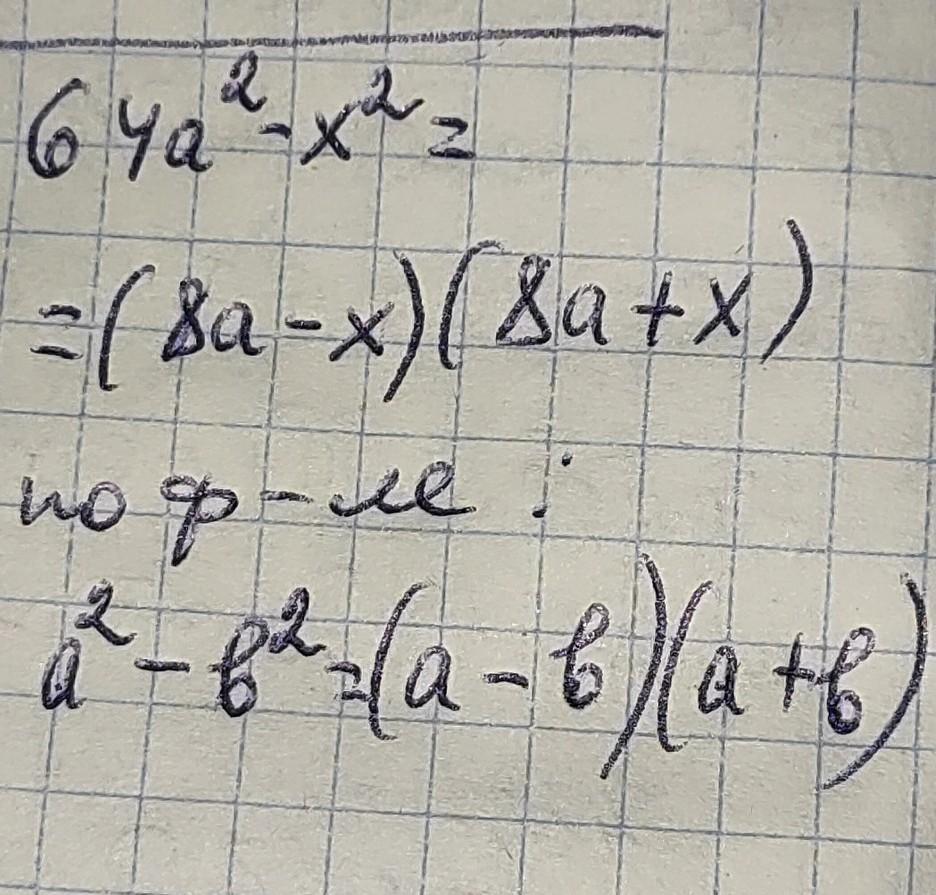 64a² - x² =
= (8a - x)(8a + x)
по ф-ле :
a² - в² = (a - в)(a + в)